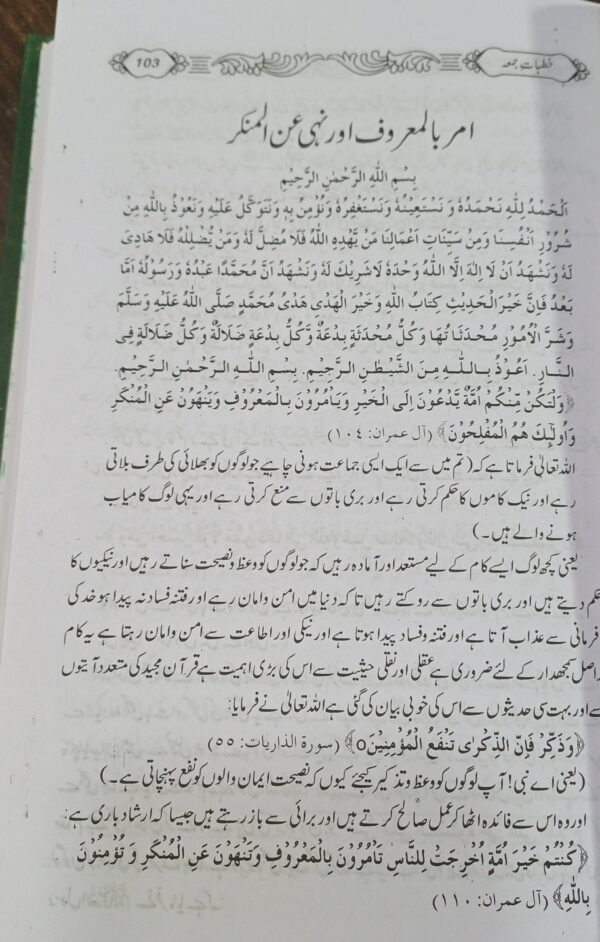 خطبات جمعہ
103
امر بالمعروف اور نہی عن المنکر
بِسْمِ اللهِ الرَّحْمٰنِ الرَّحِيْمِ
اَلْحَمْدُ لِلّٰهِ نَحْمَدُهٗ وَ نَسْتَعِيْنُهٗ وَنَسْتَغْفِرُهٗ وَنُؤْمِنُ بِهٖ وَنَتَوَكَّلُ عَلَيْهِ وَنَعُوْذُ بِاللهِ مِنْ
شُرُوْرِ اَنْفُسِنَا وَمِنْ سَيِّئَاتِ اَعْمَالِنَا مَنْ يَّهْدِهِ اللهُ فَلَا مُضِلَّ لَهٗ وَمَنْ يُّضْلِلْهُ فَلَا هَادِىَ
لَهٗ وَنَشْهَدُ اَنْ لَا اِلٰهَ اِلَّا اللهُ وَحْدَهٗ لَا شَرِيْكَ لَهٗ وَنَشْهَدُ اَنَّ مُحَمَّدًا عَبْدُهٗ وَرَسُوْلُهٗ اَمَّا
بَعْدُ فَاِنَّ خَيْرَ الْحَدِيْثِ كِتَابُ اللهِ وَخَيْرَ الْهَدْىِ هَدْىُ مُحَمَّدٍ صَلَّى اللهُ عَلَيْهِ وَسَلَّمَ
وَشَرَّ الْاُمُوْرِ مُحْدَثَاتُهَا وَكُلُّ مُحْدَثَةٍ بِدْعَةٌ وَّكُلُّ بِدْعَةٍ ضَلَالَةٌ وَكُلُّ ضَلَالَةٍ فِى
النَّارِ. اَعُوْذُ بِاللهِ مِنَ الشَّيْطٰنِ الرَّجِيْمِ. بِسْمِ اللهِ الرَّحْمٰنِ الرَّحِيْمِ.
﴿وَلْتَكُنْ مِّنْكُمْ اُمَّةٌ يَّدْعُوْنَ اِلَى الْخَيْرِ وَيَاْمُرُوْنَ بِالْمَعْرُوْفِ وَيَنْهَوْنَ عَنِ الْمُنْكَرِ
وَاُولٰٓئِكَ هُمُ الْمُفْلِحُوْنَ﴾ (آل عمران: ۱۰۴)
اللہ تعالیٰ فرماتا ہے کہ (تم میں سے ایک ایسی جماعت ہونی چاہیے جو لوگوں کو بھلائی کی طرف بلاتی
رہے اور نیک کاموں کا حکم کرتی رہے اور بری باتوں سے منع کرتی رہے اور یہی لوگ کامیاب
ہونے والے ہیں۔)
یعنی کچھ لوگ ایسے کام کے لیے مستعد اور آمادہ رہیں کہ جو لوگوں کو وعظ و نصیحت سناتے رہیں اور نیکیوں کا
حکم دیتے ہیں اور بری باتوں سے روکتے رہیں تاکہ دنیا میں امن و امان رہے اور فتنہ فساد نہ پیدا ہو خدا کی
فرمانی سے عذاب آتا ہے اور فتنہ و فساد پیدا ہوتا ہے اور نیکی اور اطاعت سے امن و امان رہتا ہے یہ کام
راصل سمجھدار کے لئے ضروری ہے عقلی اور نقلی حیثیت سے اس کی بڑی اہمیت ہے قرآن مجید کی متعدد آیتوں
سے اور بہت سی حدیثوں سے اس کی خوبی بیان کی گئی ہے اللہ تعالیٰ نے فرمایا:
﴿وَذَكِّرْ فَاِنَّ الذِّكْرٰى تَنْفَعُ الْمُؤْمِنِيْنَ٥﴾ (سورة الذاريات: ۵۵)
(یعنی اے نبی! آپ لوگوں کو وعظ و تذکیر کیجئے کیوں کہ نصیحت ایمان والوں کو نفع پہنچاتی ہے۔)
اور وہ اس سے فائدہ اٹھا کر عمل صالح کرتے ہیں اور برائی سے باز رہتے ہیں جیسا کہ ارشاد باری ہے:
﴿كُنْتُمْ خَيْرَ اُمَّةٍ اُخْرِجَتْ لِلنَّاسِ تَاْمُرُوْنَ بِالْمَعْرُوْفِ وَتَنْهَوْنَ عَنِ الْمُنْكَرِ وَ تُؤْمِنُوْنَ
بِاللهِ﴾ (آل عمران: ۱۱۰)